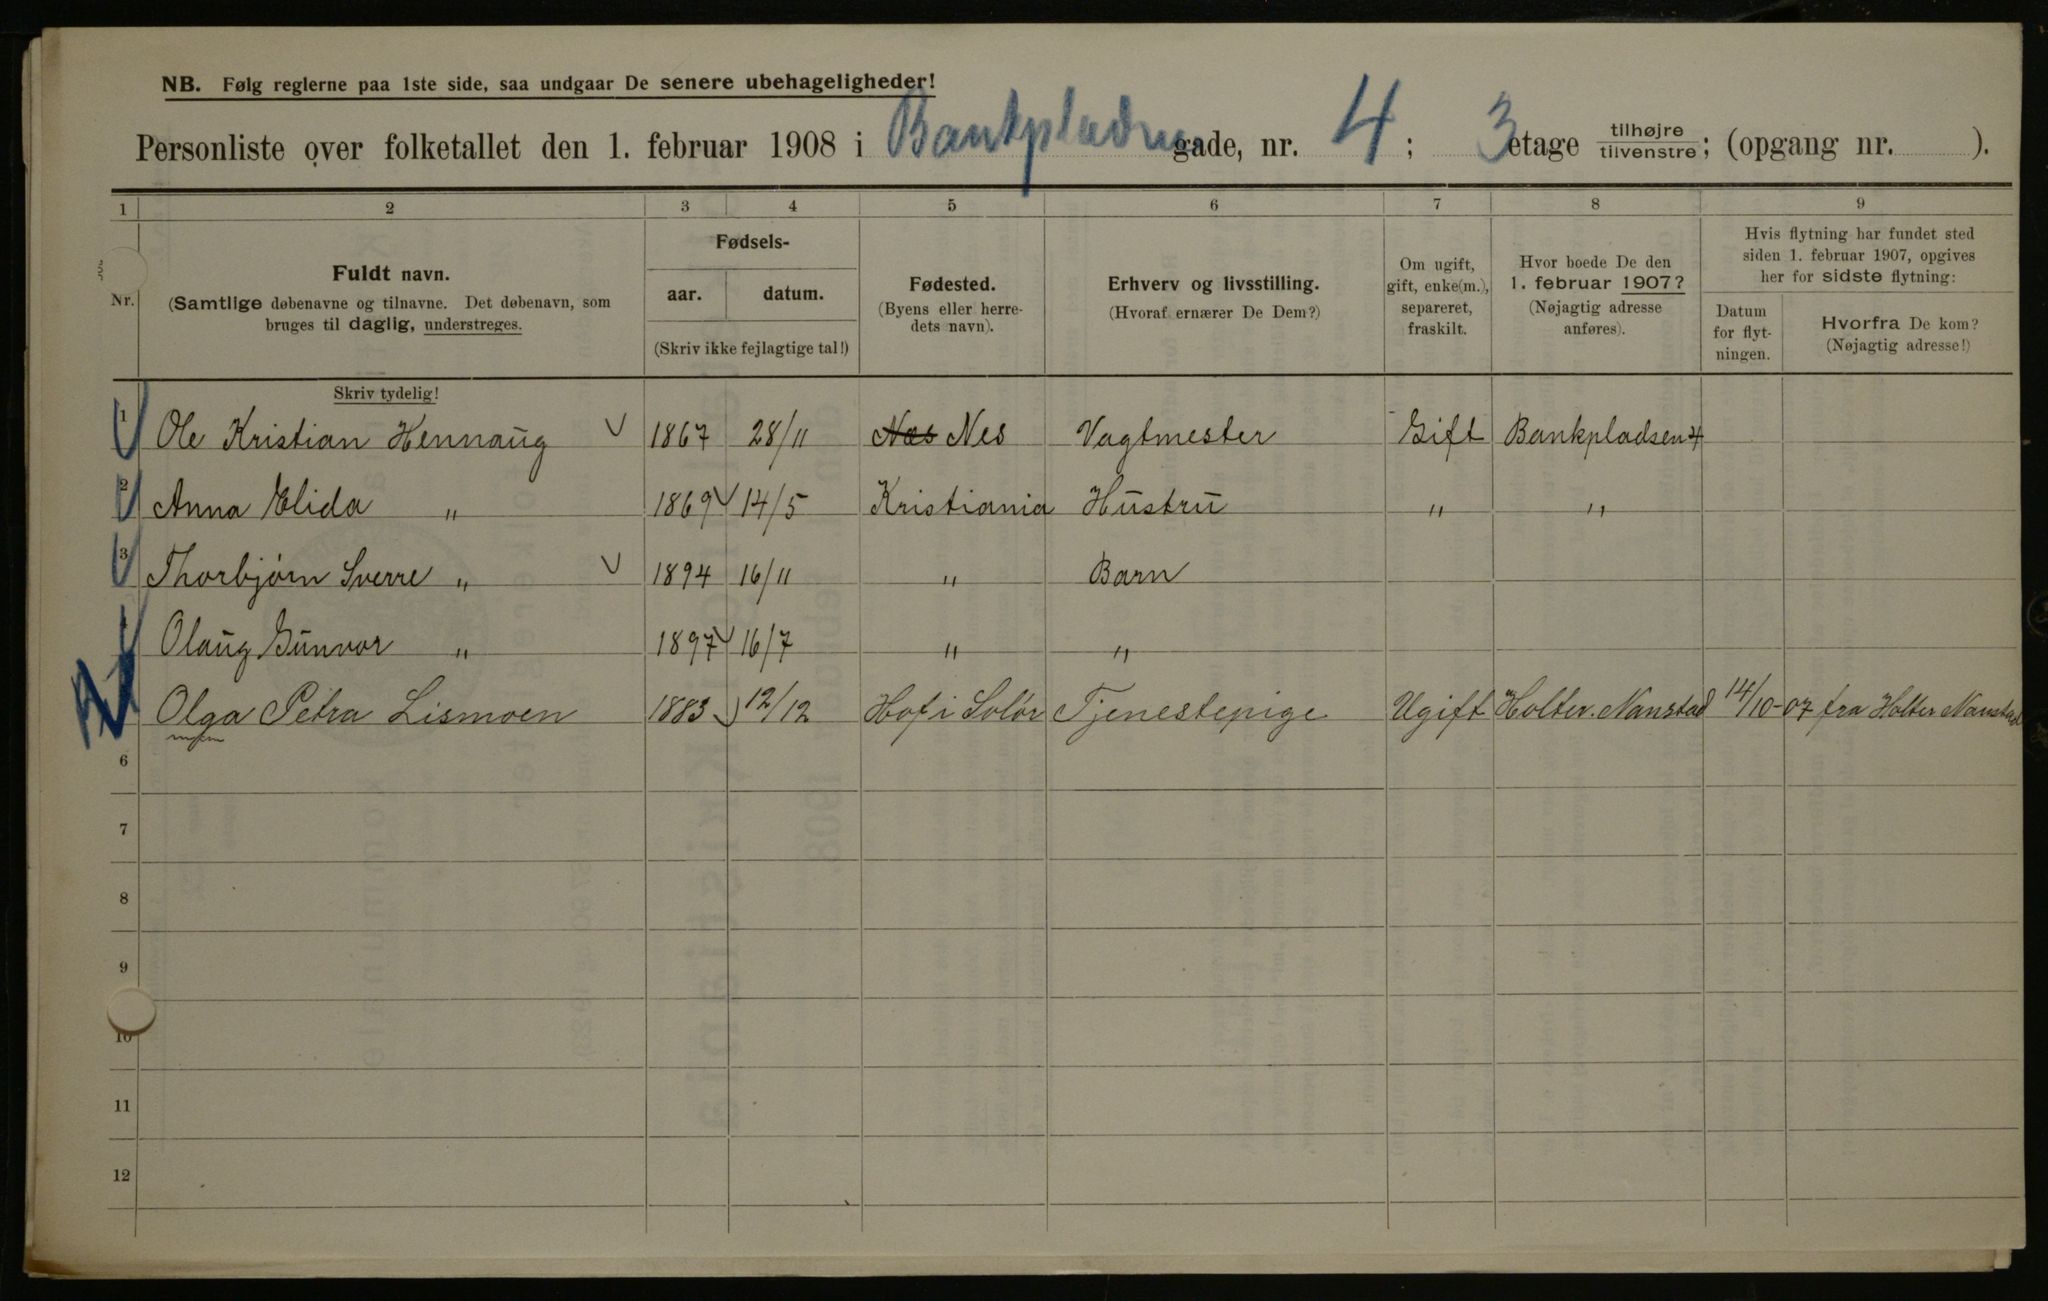 NB. Følg reglerne paa 1ste side, saa undgaar De senere ubehageligheder!
Personliste over folketallet den 1. februar 1908 i Bankpladsen gade, nr. 4 ; 3 etage tilhøjre tilvenstre ; (opgang nr. ).
1 2 3 4 5 6 7 8 9
Nr. Fuldt navn. (Samtlige døbenavne og tilnavne. Det døbenavn, som bruges til daglig, understreges. Fødsels- aar. datum. (Skriv ikke fejlagtige tal!) Fødested. (Byens eller herredets navn). Erhverv og livsstilling. (Hvoraf ernærer De Dem?) Om ugift, gift, enke(m.), separeret, fraskilt. Hvor boede De den 1. februar 1907? (Nøjagtig adresse anføres). Hvis flytning har fundet sted siden 1. februar 1907, opgives her for sidste flytning: Datum for flytningen. Hvorfra De kom? (Nøjagtig adresse!)
Skriv tydelig!
1 Ole Kristian Hennaug 1867 28/11 Næs Nes Vagtmester Gift Bankpladsen 4
2 Anna Elida " 1869 14/5 Kristiania Hustru " "
3 Thorbjørn Sverre " 1894 16/11 " Barn
4 Olaug Gunvor " 1897 16/7 " "
Olga Petra Lismoen 1883 12/12 Hof i Solør Tjenestepige Ugift Holter. Nanstad 14/10-07 fra Holter Nanstad
6
7
8
9
10
11
12